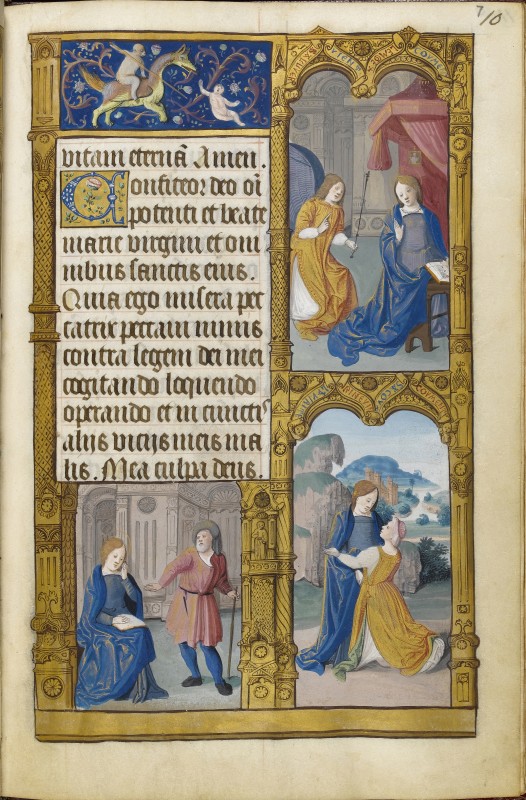 7/10
vitam eternā Amen.
Confiteor deo oī
potenti et beate
marie virgini et om
nibus sanctis eius.
Quia ego misera pec
catrix peccaui nimis
contra legem dei mei
cogitando loquendo
operando et in cunctis
alijs vicijs meis ma
lis. Mea culpa deus